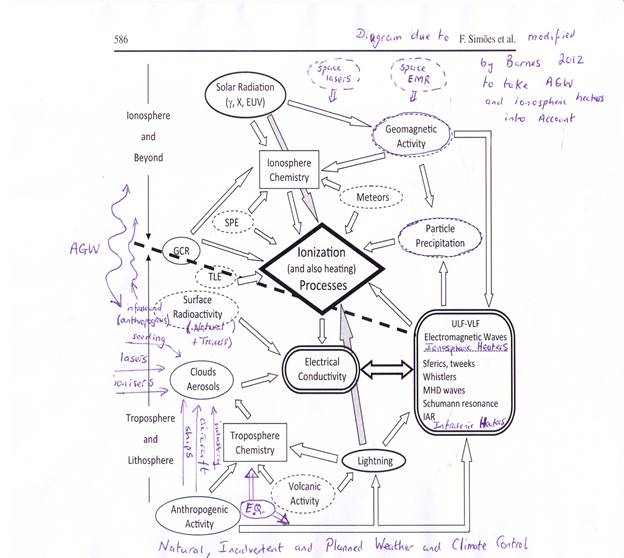 586
Diagram due to F. Simões et al. modified
by Barnes 2012
to take AGW
and ionospheric heaters
into Account
space
lasers
space
EMR
Solar Radiation
(γ, X, EUV)
Ionosphere
and
Beyond
Geomagnetic
Activity
Ionosphere
Chemistry
Meteors
SPE
Particle
Precipitation
AGW
GCR
Ionization
(and also heating)
Processes
TLE
infrasound
(anthropogenic)
Surface
Radioactivity
(Natural
+ Traces)
seeding
lasers
ionisers
Clouds
Aerosols
Electrical
Conductivity
ULF-VLF
Electromagnetic Waves
Ionospheric Heaters
Sferics, tweeks
Whistlers
MHD waves
Schumann resonance
IAR
Infrasonic Heaters
Troposphere
and
Lithosphere
ships
aircraft
industry
Troposphere
Chemistry
Lightning
Volcanic
Activity
E.Q.
Anthropogenic
Activity
Natural, Inadvertent and Planned Weather and Climate Control